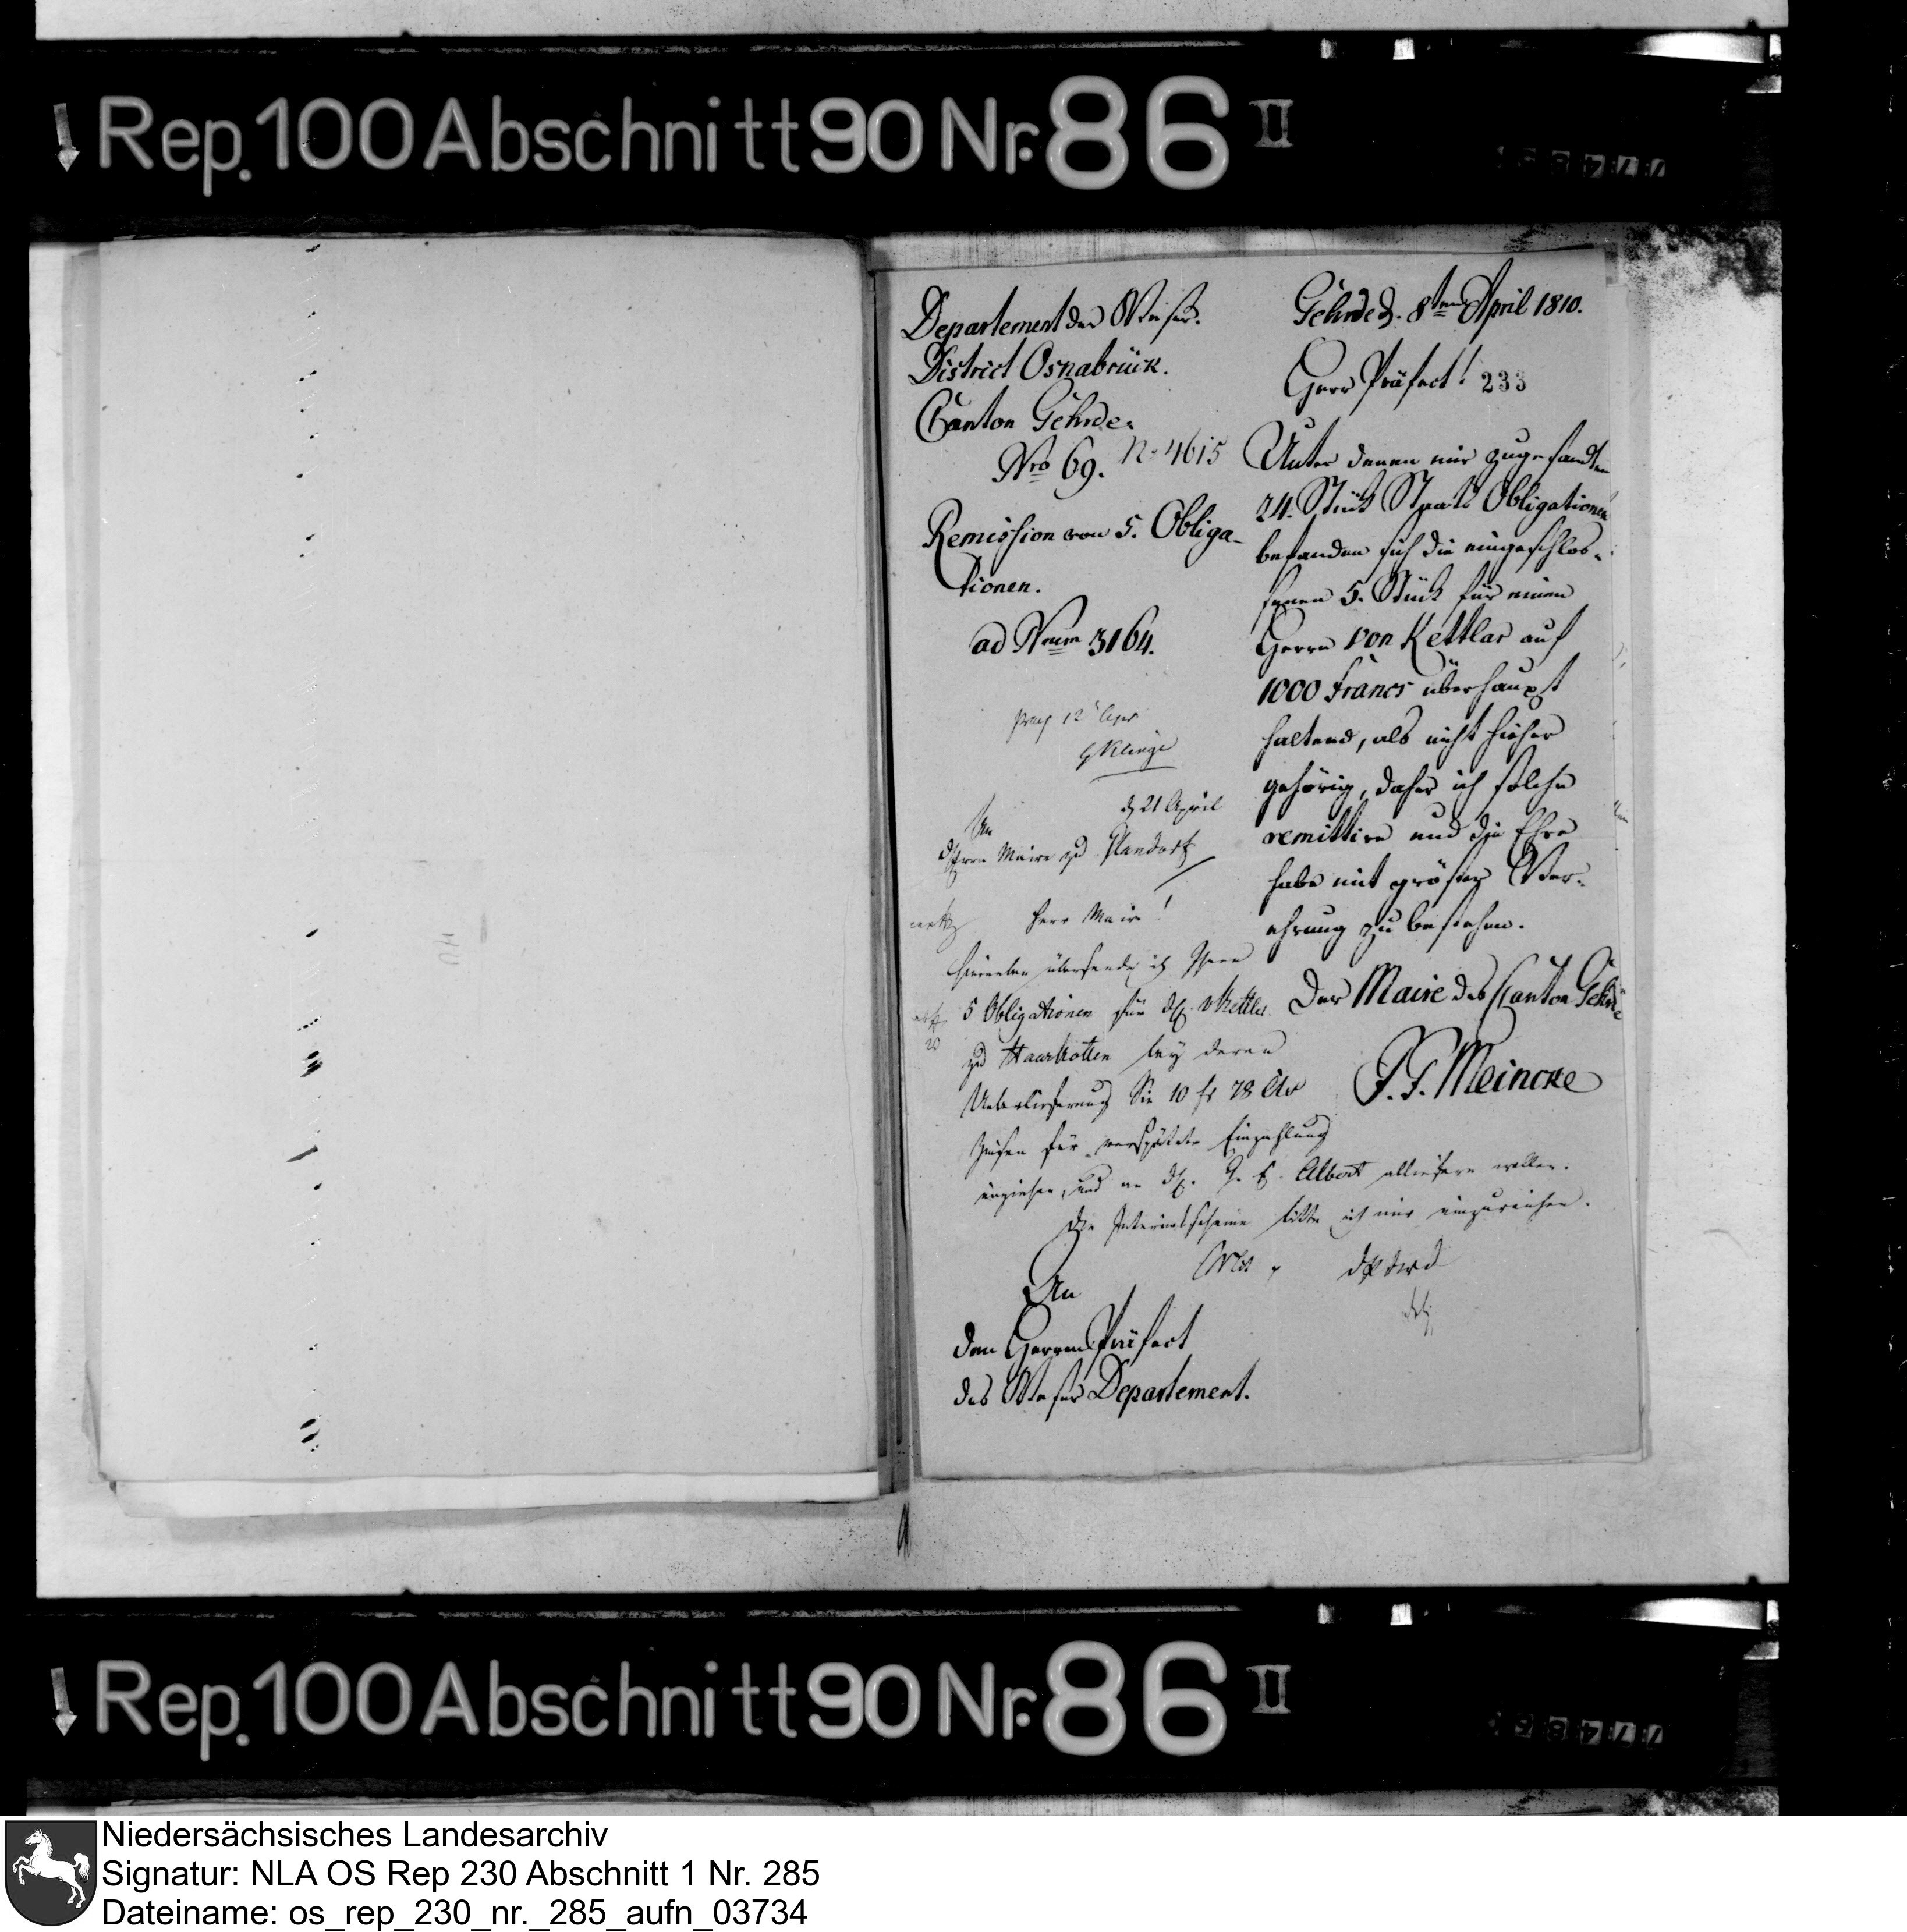 Rep. 100 Abschnitt 90 Nr. 86 II
Departement der Weser.
District Osnabrück.
Canton Gehrde.
Nro 69. N. 4615
Remission von 5. Obliga-
tionen.
ad Num 3164.
Gehrde d. 8ten April 1810.
Herr Präfect!
233
Unter denen mir zugesandten
24. Stück Staats Obligationen
befanden sich die eingeschlos-
senen 5. Stück für einen
Herrn von Kettlar auf
1000 Francs überhaupt
haltend, als nicht hieher
gehörig, daher ich solche
remittire und die Ehre
habe mit gröster Ver-
ehrung zu bestehen.
Der Maire des Canton Gehrde
F. F. Meincke
12
d 21 April
An
Herrn Maire zu
Herr Maire!
Hierneben übersende ich Ihnen
5 Obligationen für v Kettler
zu Haarkotten bey deren
Ueberlieferung Sie 10 fr 78
Zinsen für verspätete Einzahlung
einziehen, und an Albert abliefern wollen.
Die Interimsscheine bitte ich mir einzureichen.
An
den Herrn Präfect
des Weser Departement.
Rep. 100 Abschnitt 90 Nr. 86 II
Niedersächsisches Landesarchiv
Signatur: NLA OS Rep 230 Abschnitt 1 Nr. 285
Dateiname: os_rep_230_nr._285_aufn_03734